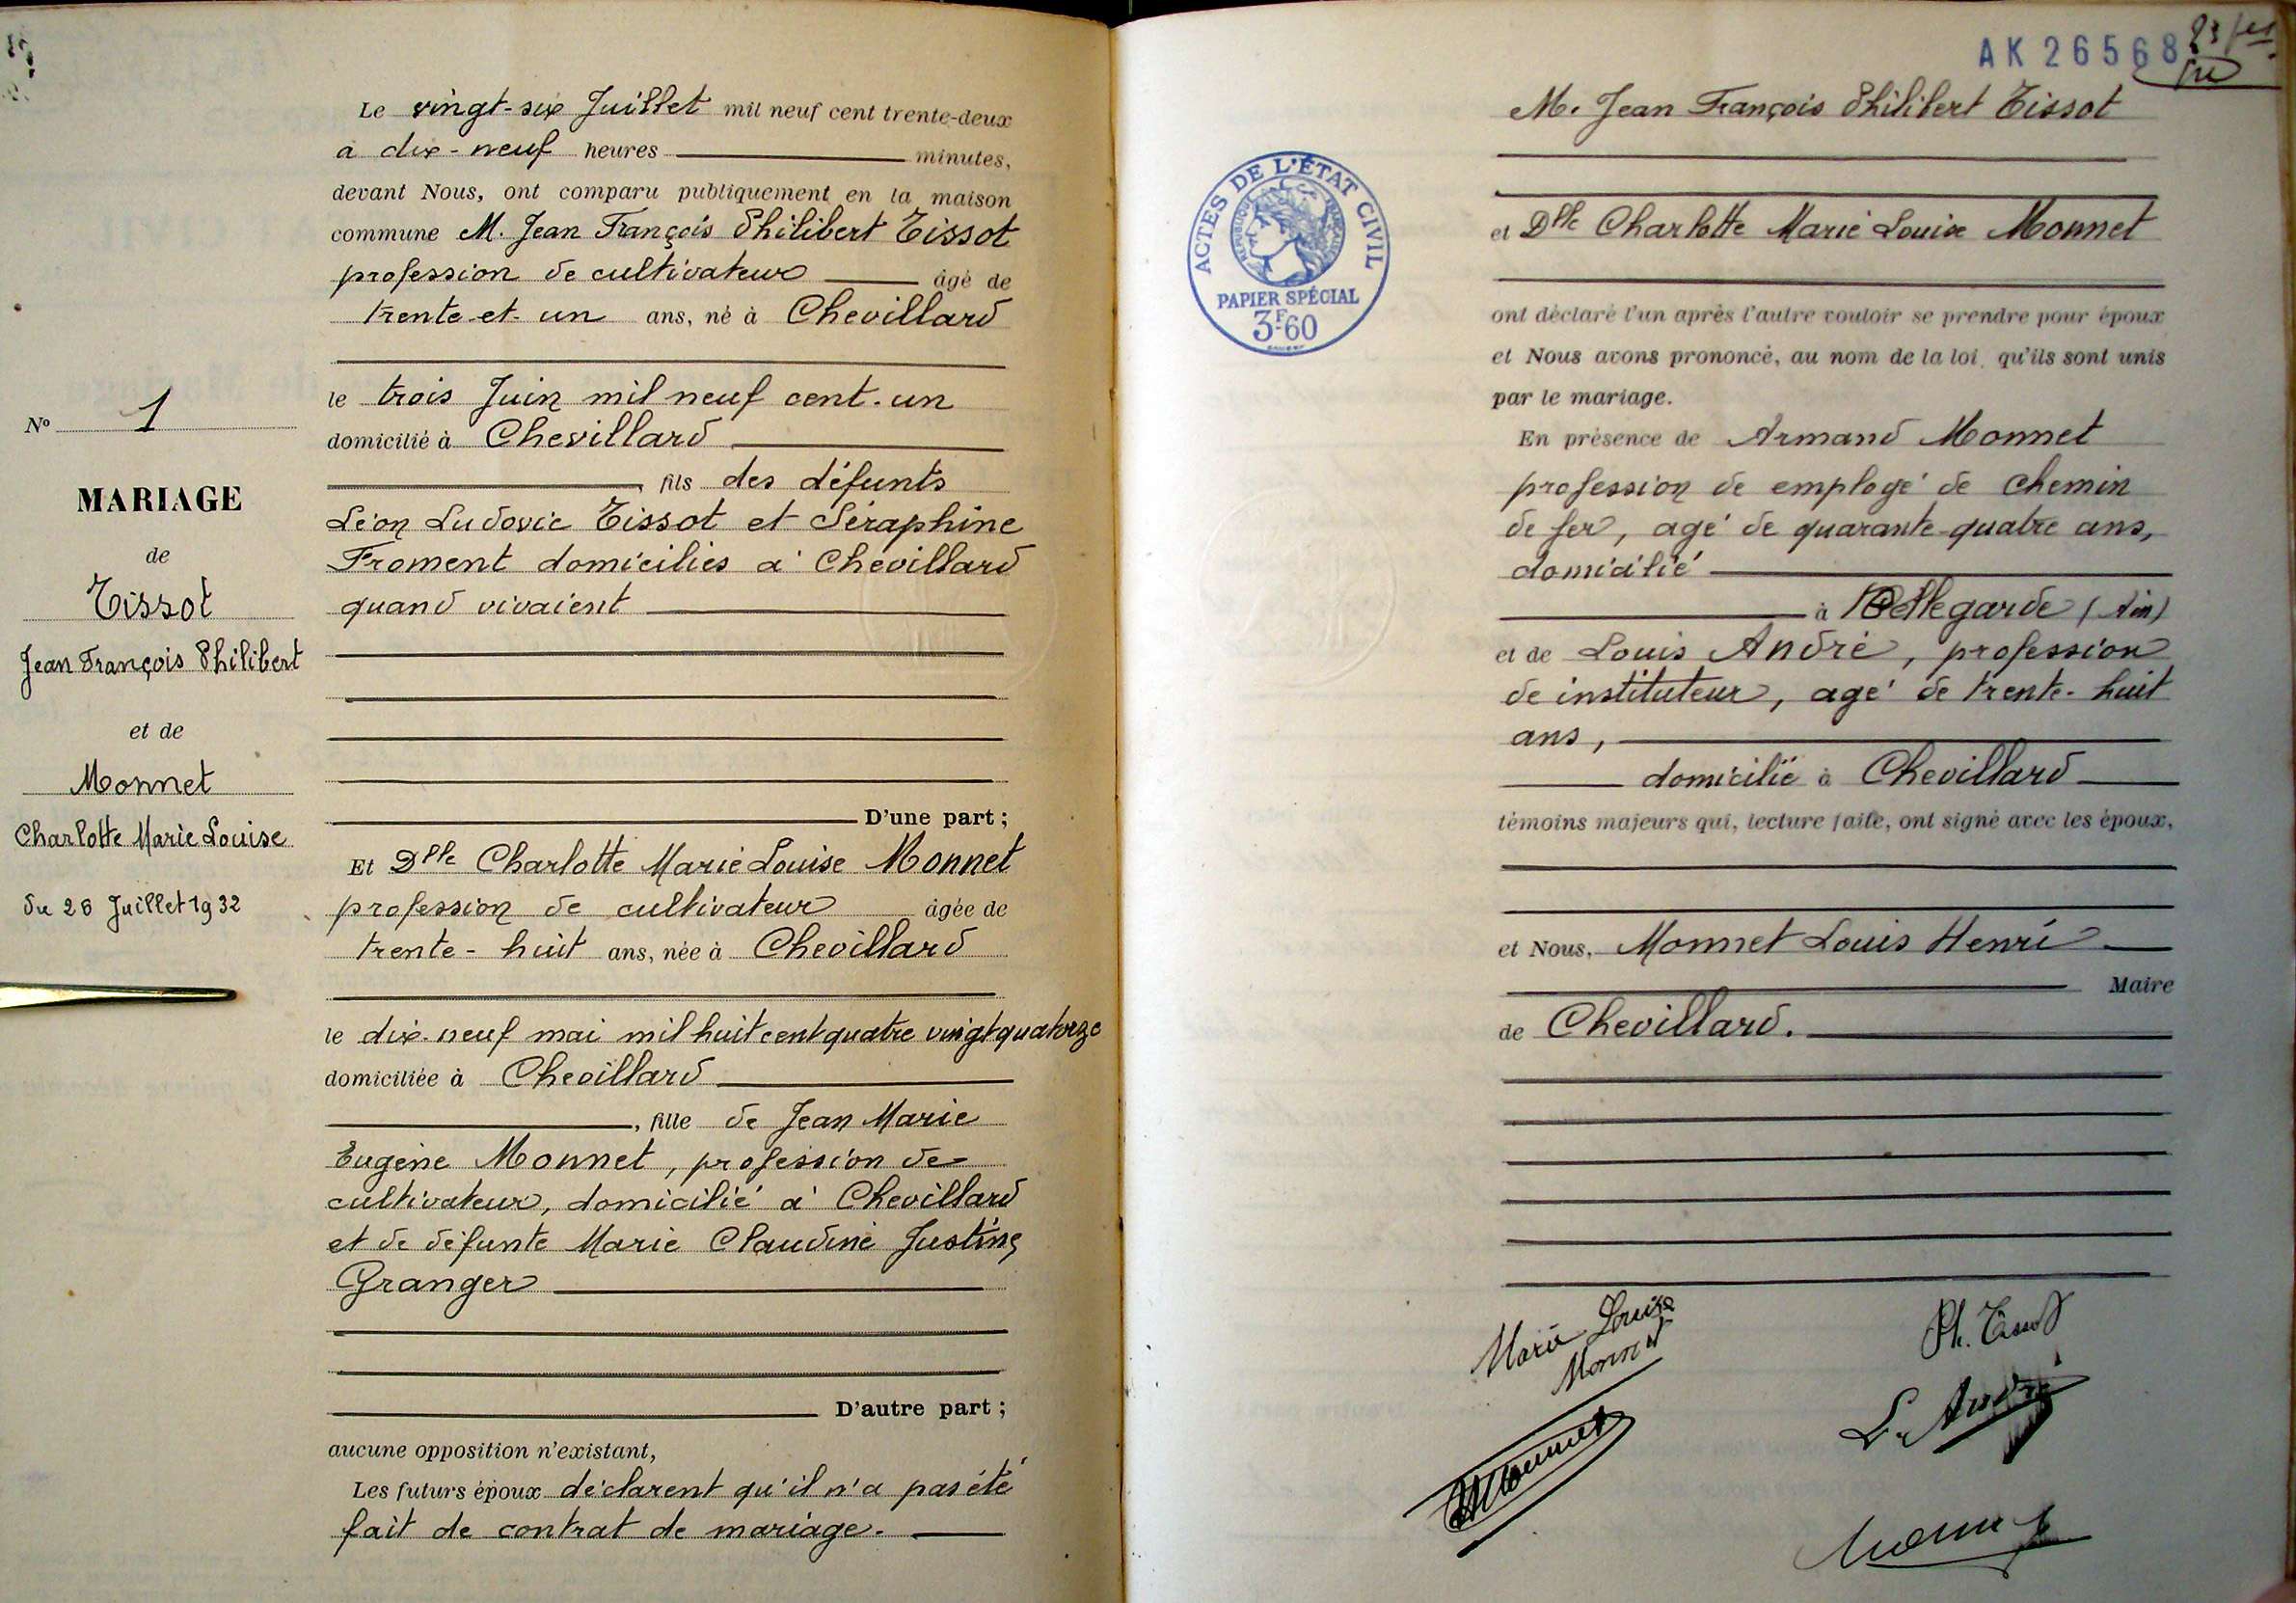 Nº 1
MARIAGE
de
Tissot
Jean François Philibert
et de
Monnet
Charlotte Marie Louise
du 26 Juillet 1932
Le vingt-six Juillet mil neuf cent trente-deux
à dix-neuf heures minutes,
devant Nous, ont comparu publiquement en la maison
commune M. Jean François Philibert Tissot
profession de cultivateur âgé de
trente-et-un ans, né à Chevillard
le trois Juin mil neuf cent-un
domicilié à Chevillard
, fils des défunts
Léon Ludovic Tissot et Séraphine
Froment domiciliés à Chevillard
quand vivaient
D'une part ;
Et Dlle Charlotte Marie Louise Monnet
profession de cultivateur âgée de
trente-huit ans, née à Chevillard
le dix-neuf mai mil huit cent quatre vingt quatorze
domiciliée à Chevillard
, fille de Jean Marie
Eugène Monnet, profession de
cultivateur, domicilié à Chevillard
et de défunte Marie Claudine Justine
Granger
D'autre part ;
aucune opposition n'existant,
Les futurs époux déclarent qu'il n'a pas été
fait de contrat de mariage.
AK 26568
ACTES DE L'ÉTAT CIVIL
RÉPUBLIQUE FRANÇAISE
PAPIER SPÉCIAL
3F60
M. Jean François Philibert Tissot
et Dlle Charlotte Marie Louise Monnet
ont déclaré l'un après l'autre vouloir se prendre pour époux
et Nous avons prononcé, au nom de la loi, qu'ils sont unis
par le mariage.
En présence de Armand Monnet
profession de employé de chemin
de fer, agé de quarante-quatre ans,
domicilié
à Bellegarde (Ain)
et de Louis André, profession
de instituteur, agé de trente-huit
ans,
domicilié à Chevillard
témoins majeurs qui, lecture faite, ont signé avec les époux,
et Nous, Monnet Louis Henri
Maire
de Chevillard.
Marie Louise
Monnet
Ph. Tissot
L. André
Monnet
Monnet